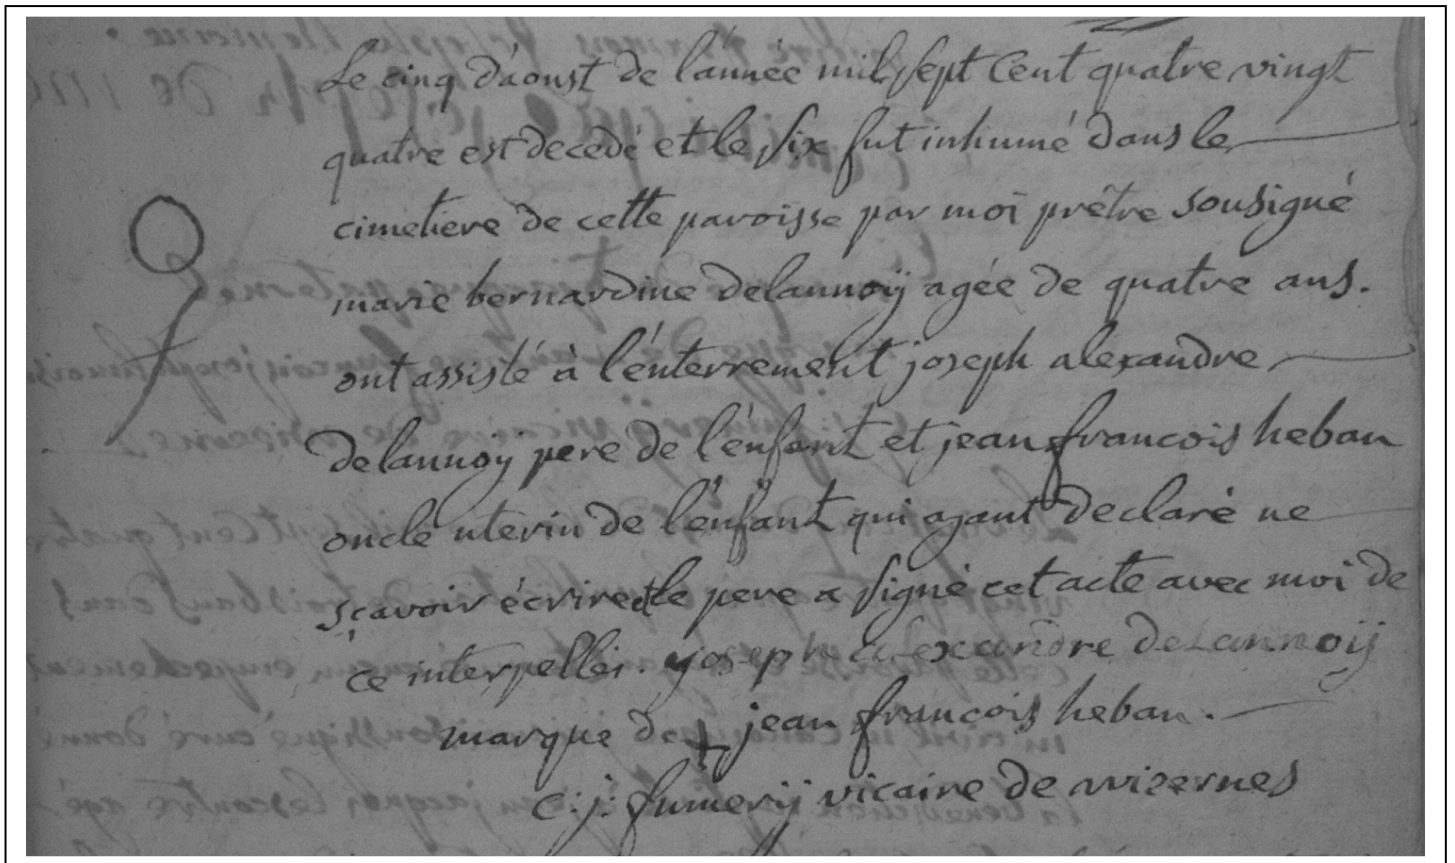 Le cinq d'aoust de l'année mil sept Cent quatre vingt
quatre est decedé et le six fut inhumé dans le
cimetiere de cette paroisse par moi prêtre sousigné
marie bernardine delannoÿ agée de quatre ans.
ont assisté à l'énterrement joseph alexandre
delannoy pere de l'énfant et jean francois heban
oncle uterin de l'énfant qui ayant declaré ne
sçavoir écrire et le pere a signé cet acte avec moi de
ce interpellés. yoseph alexandre deLannoÿ
marque de + jean francois heban.
C: j: fumerÿ vicaire de wizernes